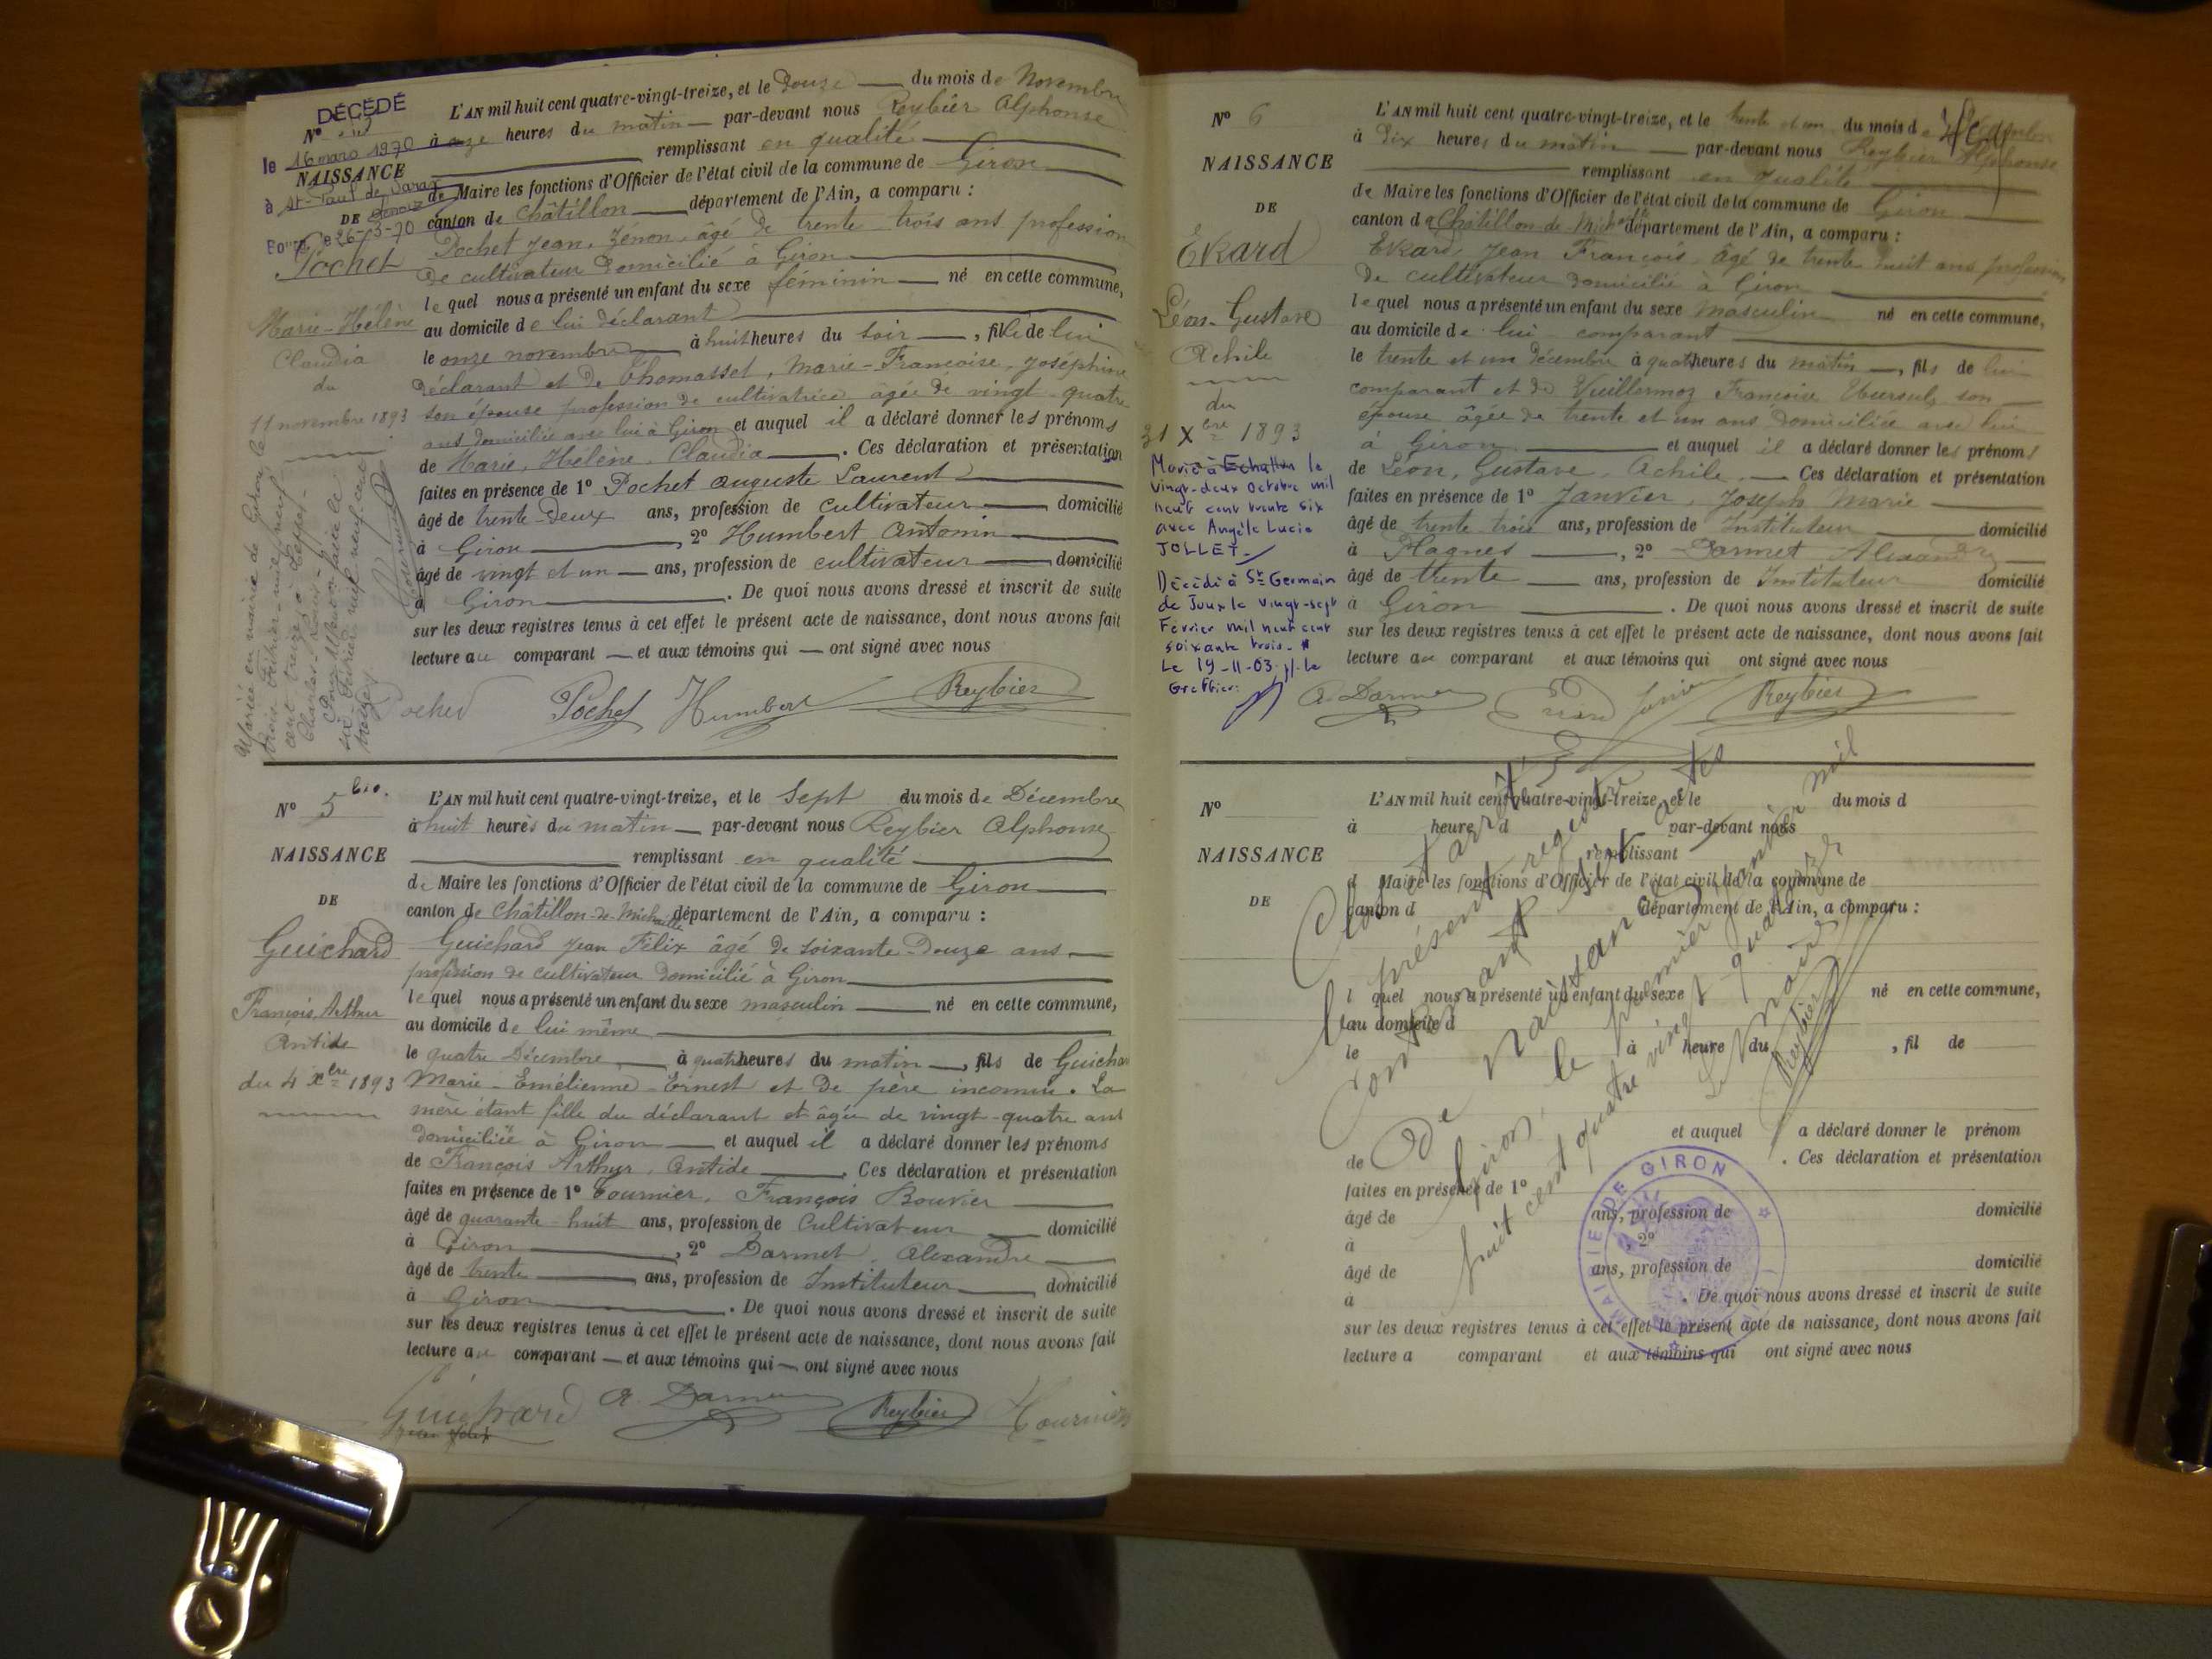 DÉCÉDÉ
Nº
le 16 mars 1970
NAISSANCE
à St-Paul de Varax
DE
26-3-70
Pochet
Marie-Hélène
Claudia
du
11 novembre 1893
Mariée en mairie de Giron le
trois février mil neuf
cent treize à
Charles
L'AN mil huit cent quatre-vingt-treize, et le Douze du mois de Novembre
à onze heures du matin par-devant nous Reybier Alphonse
remplissant en qualité
de Maire les fonctions d'Officier de l'état civil de la commune de Giron
canton de Châtillon département de l'Ain, a comparu :
Pochet Jean, Zénon, âgé de trente trois ans profession
de cultivateur domicilié à Giron
le quel nous a présenté un enfant du sexe féminin né en cette commune,
au domicile de lui déclarant
le onze novembre à huit heures du soir, fille de lui
déclarant et de Thomasset, Marie-Françoise, Joséphine
son épouse profession de cultivatrice âgée de vingt quatre
ans domiciliée avec lui à Giron et auquel il a déclaré donner les prénoms
de Marie, Hélène, Claudia. Ces déclaration et présentation
faites en présence de 1º Pochet Auguste Laurent
âgé de trente-deux ans, profession de cultivateur domicilié
à Giron, 2º Humbert Antonin
âgé de vingt et un ans, profession de cultivateur domicilié
à Giron. De quoi nous avons dressé et inscrit de suite
sur les deux registres tenus à cet effet le présent acte de naissance, dont nous avons fait
lecture au comparant et aux témoins qui ont signé avec nous
Pochet Pochet Humbert Reybier
Nº 5 bis.
NAISSANCE
DE
Guichard
François, Arthur
Antide
du 4 Xbre 1893
L'AN mil huit cent quatre-vingt-treize, et le Sept du mois de Décembre
à huit heures du matin par-devant nous Reybier Alphonse
remplissant en qualité
de Maire les fonctions d'Officier de l'état civil de la commune de Giron
canton de Châtillon-de-Michaille département de l'Ain, a comparu :
Guichard Jean Félix âgé de soixante-douze ans
profession de cultivateur domicilié à Giron
le quel nous a présenté un enfant du sexe masculin né en cette commune,
au domicile de lui même
le quatre Décembre, à quatre heures du matin, fils de Guichard
Marie-Emélienne-Ernest et de père inconnu. La
mère étant fille du déclarant et âgée de vingt-quatre ans
domiciliée à Giron et auquel il a déclaré donner les prénoms
de François Arthur, Antide. Ces déclaration et présentation
faites en présence de 1º Tournier, François Bouvier
âgé de quarante-huit ans, profession de Cultivateur domicilié
à Giron, 2º Darmet, Alexandre
âgé de trente ans, profession de Instituteur domicilié
à Giron. De quoi nous avons dressé et inscrit de suite
sur les deux registres tenus à cet effet le présent acte de naissance, dont nous avons fait
lecture au comparant et aux témoins qui ont signé avec nous
Guichard A. Darmet Reybier Tournier
Jean félix
Nº 6
NAISSANCE
DE
Ékard
Léon-Gustave
Achile
du
31 Xbre 1893
Marié à Echallon le
vingt-deux Octobre mil
neuf cent trente six
avec Angèle Lucie
JOLLET.
Décédé à St Germain
de Joux le vingt-sept
Février mil neuf cent
soixante trois.
Le 19-11-03. Le
Greffier.
L'AN mil huit cent quatre-vingt-treize, et le trente et un du mois de Décembre
à dix heures du matin par-devant nous Reybier Alphonse
remplissant en qualité
de Maire les fonctions d'Officier de l'état civil de la commune de Giron
canton de Châtillon-de-Michaille département de l'Ain, a comparu :
Ékard, Jean François âgé de trente huit ans profession
de cultivateur domicilié à Giron
le quel nous a présenté un enfant du sexe masculin né en cette commune,
au domicile de lui comparant
le trente et un Décembre à quatre heures du matin, fils de lui
comparant et de Vuillermoz Françoise son
épouse âgée de trente et un ans domiciliée avec lui
à Giron et auquel il a déclaré donner les prénoms
de Léon, Gustave Achile. Ces déclaration et présentation
faites en présence de 1º Janvier, Joseph Marie
âgé de trente trois ans, profession de Instituteur domicilié
à Plagnes, 2º Darmet Alexandre
âgé de trente ans, profession de Instituteur domicilié
à Giron. De quoi nous avons dressé et inscrit de suite
sur les deux registres tenus à cet effet le présent acte de naissance, dont nous avons fait
lecture au comparant et aux témoins qui ont signé avec nous
A. Darmet Janvier Reybier
Nº
NAISSANCE
DE
L'AN mil huit cent quatre-vingt-treize, et le du mois d
à heure d par-devant nous
remplissant
d Maire les fonctions d'Officier de l'état civil de la commune de
canton d département de l'Ain, a comparu :
l quel nous a présenté un enfant du sexe né en cette commune,
au domicile d
le à heure du , fil de
et auquel a déclaré donner le prénom
de . Ces déclaration et présentation
faites en présence de 1º
âgé de ans, profession de domicilié
à , 2º
âgé de ans, profession de domicilié
à . De quoi nous avons dressé et inscrit de suite
sur les deux registres tenus à cet effet le présent acte de naissance, dont nous avons fait
lecture a comparant et aux témoins qui ont signé avec nous
Clos et arrêté
le présent registre
Contenant sept actes
De naissance
Giron, le premier janvier mil
huit cent quatre vingt quatorze
Le Maire
Reybier
MAIRIE DE GIRON